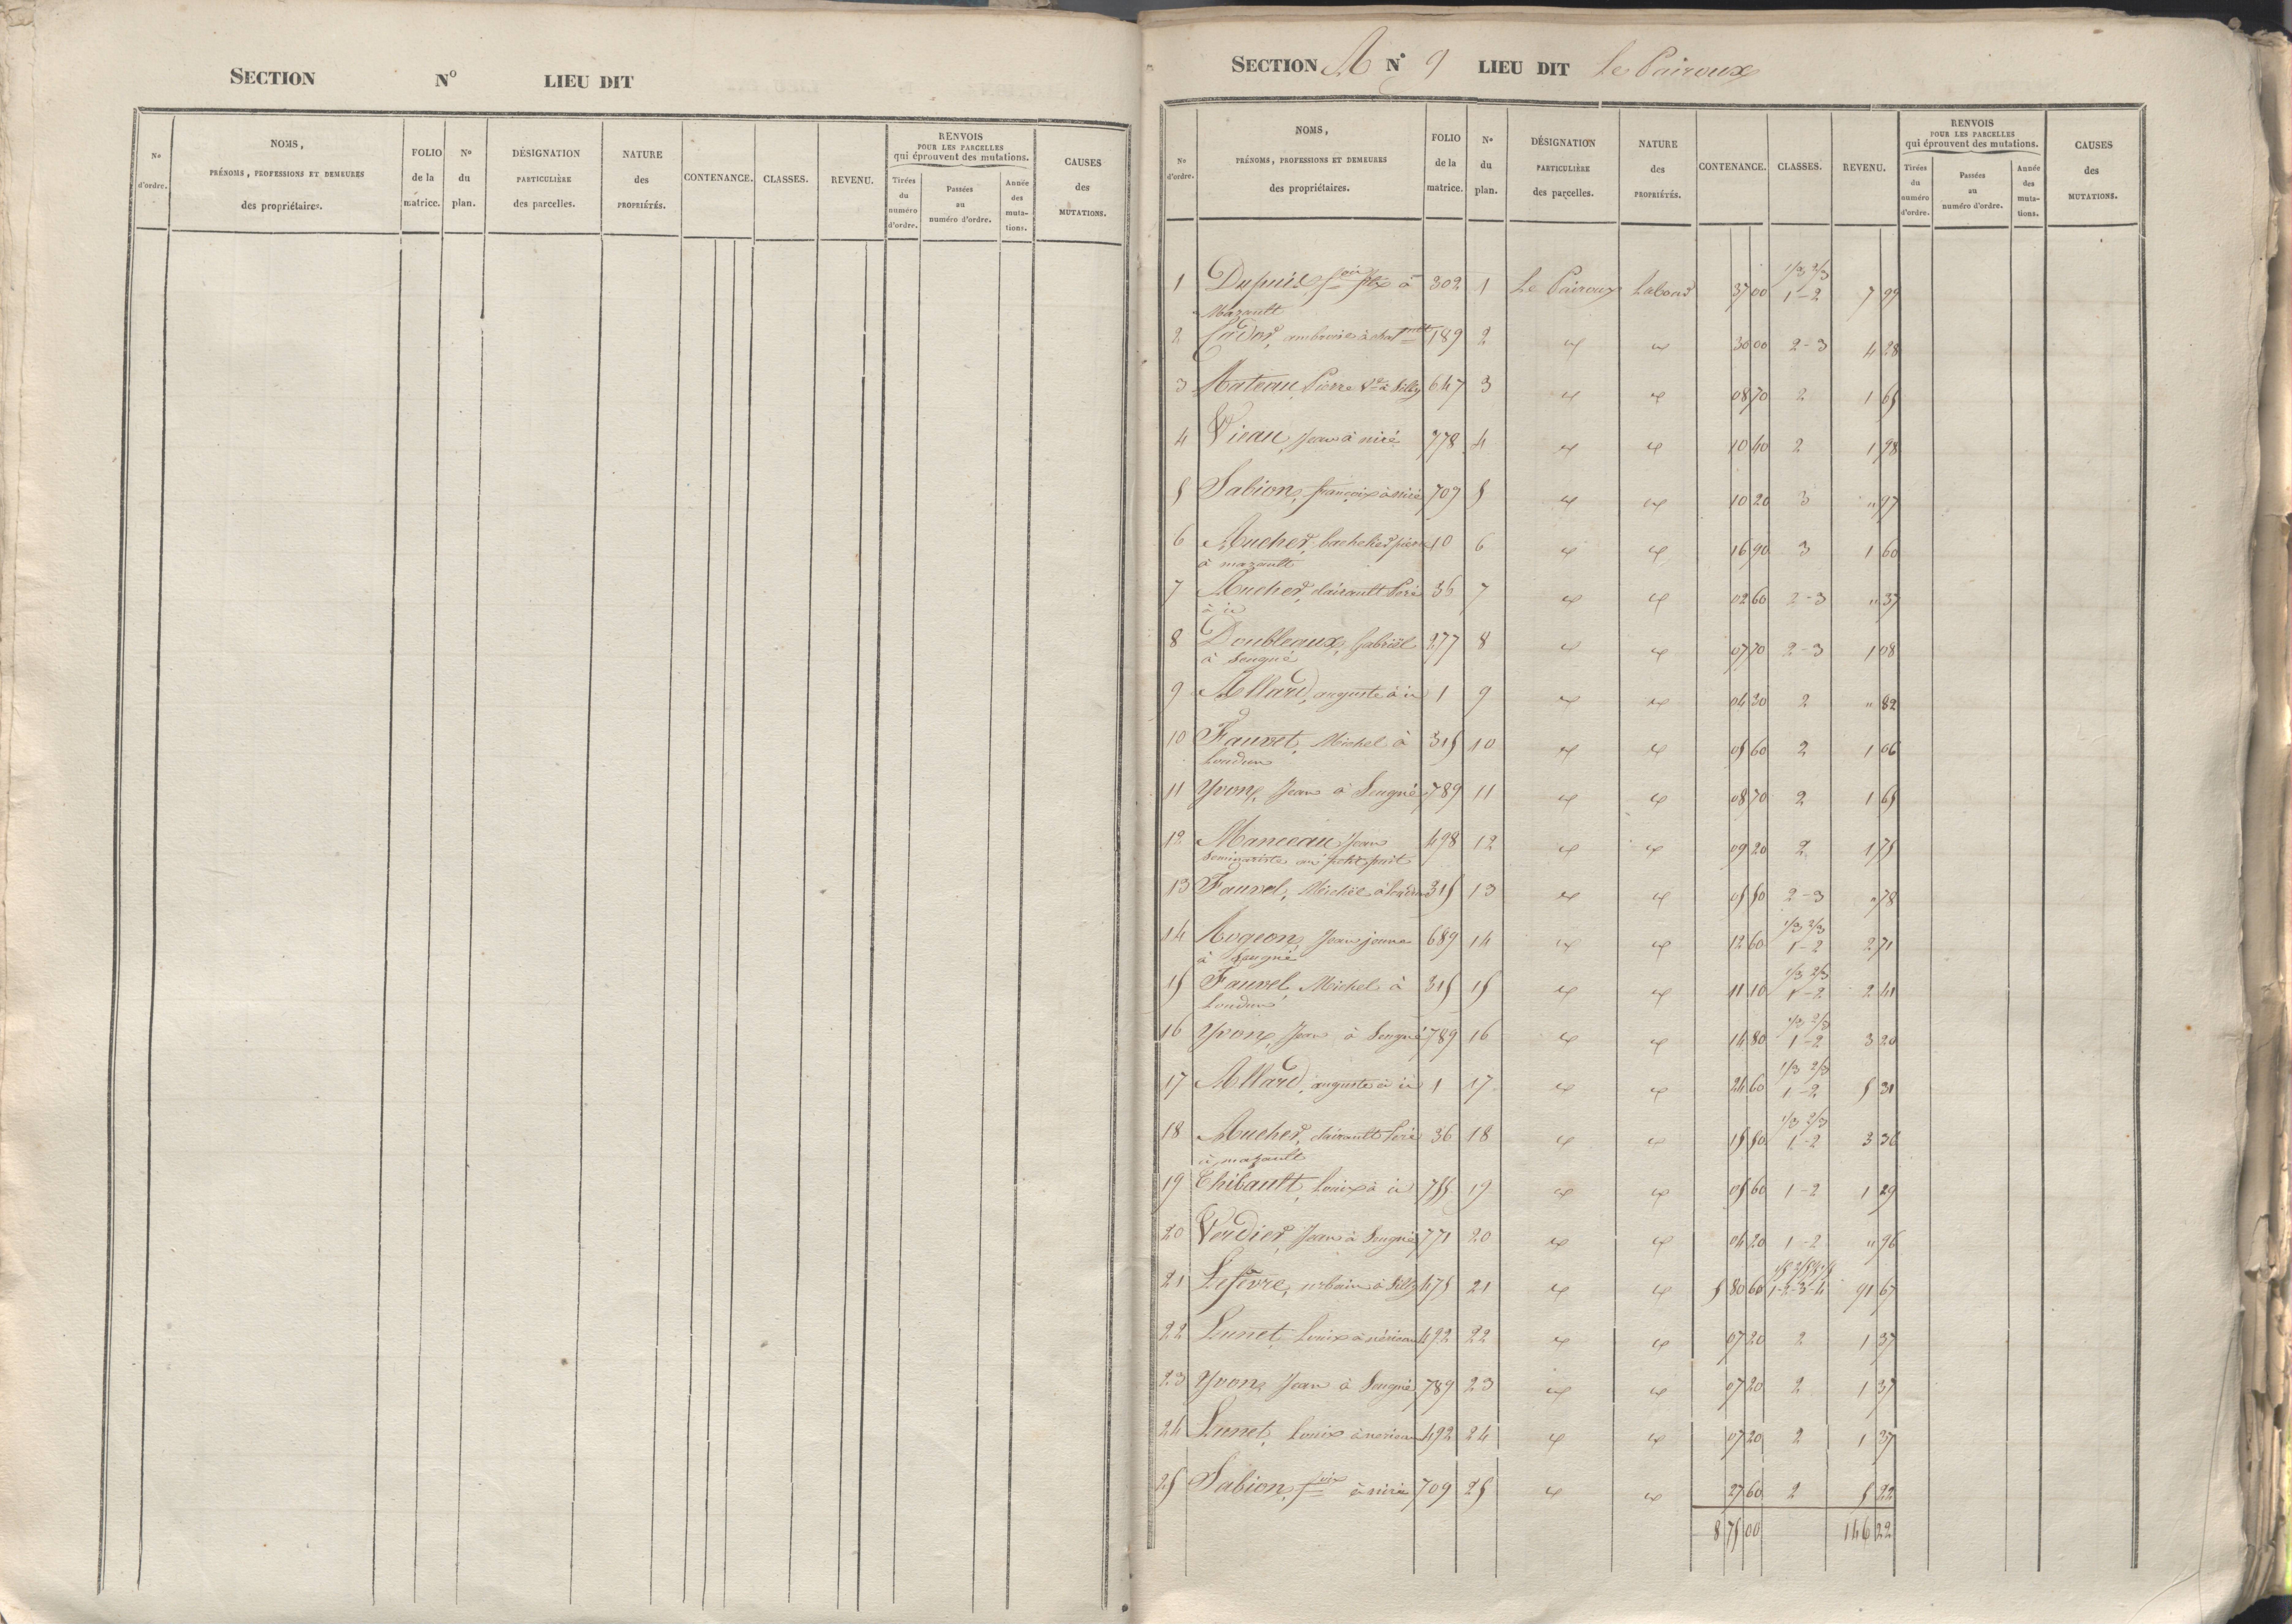 SECTION N° LIEU DIT
N° d'ordre. NOMS, PRÉNOMS, PROFESSIONS ET DEMEURES des propriétaires. FOLIO de la matrice. N° du plan. DÉSIGNATION PARTICULIÈRE des parcelles. NATURE des PROPRIÉTÉS. CONTENANCE. CLASSES. REVENU. RENVOIS POUR LES PARCELLES qui éprouvent des mutations. Tirées du numéro d'ordre. Passées au numéro d'ordre. Année des mutations. CAUSES des MUTATIONS.
SECTION A N° 9 LIEU DIT Le Pairoux
N° d'ordre. NOMS, PRÉNOMS, PROFESSIONS ET DEMEURES des propriétaires. FOLIO de la matrice. N° du plan. DÉSIGNATION PARTICULIÈRE des parcelles. NATURE des PROPRIÉTÉS. CONTENANCE. CLASSES. REVENU. RENVOIS POUR LES PARCELLES qui éprouvent des mutations. Tirées du numéro d'ordre. Passées au numéro d'ordre. Année des mutations. CAUSES des MUTATIONS.
1/3 2/3
1 Dupuis à 302 1 Le Pairoux Labour 37 00 1-2 7 99
Mazault
2 189 2 " " 30 00 2-3 4 28
3 Rateau, Pierre Ve à Silly 647 3 " " 08 70 2 1 65
4 Vieau, Jean à niré 778 4 " " 10 40 2 1 98
5 Sabion, françoix à niré 709 5 " " 10 20 3 " 97
6 Aucher, bachelier pierre 10 6 " " 16 90 3 1 60
à mazault
7 Aucher, clairault 36 7 " " 02 60 2-3 " 37
à ici
8 Doubleaux, Gabriël 277 8 " " 07 70 2-3 1 08
à Seugné
9 Allard, auguste à ici 1 9 " " 04 30 2 " 82
10 Fauvel, Michel à 315 10 " " 05 60 2 1 06
Loudun
11 Yvon, Jean à Seugné 789 11 " " 08 70 2 1 65
12 Manceau, Jean 498 12 " " 09 20 2 1 75
Seminariste au petit
13 Fauvel, Michel à Loudun 315 13 " " 05 50 2-3 " 78
1/3 2/3
14 Rogeon, Jean jeune 689 14 " " 12 60 1-2 2 71
à Seugné
1/3 2/3
15 Fauvel, Michel à 315 15 " " 11 10 1-2 2 41
Loudun
1/3 2/3
16 Yvon, Jean à Seugné 789 16 " " 14 80 1-2 3 20
1/3 2/3
17 Allard, auguste à ici 1 17 " " 24 60 1-2 5 31
1/3 2/3
18 Aucher, clairault 36 18 " " 15 50 1-2 3 36
à mazault
19 Thibault, Louix à ici 755 19 " " 05 60 1-2 1 29
20 Verdier, Jean à Seugné 771 20 " " 04 20 1-2 " 96
21 Lefèvre, urbain à Silly 475 21 " " 5 80 60 1-2-3-4 91 67
22 Lunet, Louix à 492 22 " " 07 20 2 1 37
23 Yvon, Jean à Seugné 789 23 " " 07 20 2 1 37
24 Lunet, Louix à 492 24 " " 07 20 2 1 37
25 Sabion, foix à niré 709 25 " " 27 60 2 5 22
8 75 00 146 22